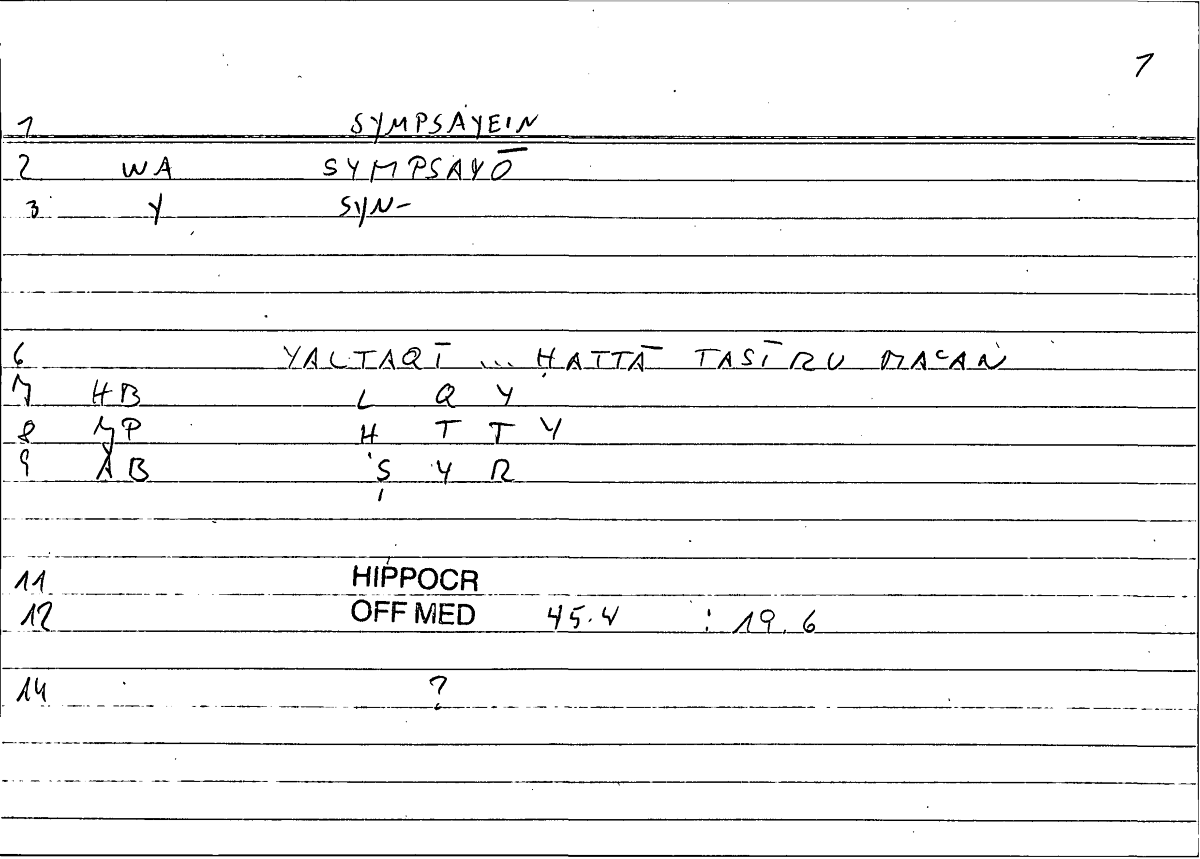 1
1 SYMPSAYEIN
2 WA SYMPSAYŌ
3 Y SYN-
6 YALTAQĪ ... ḤATTĀ TAṢĪRU MAʿAN
7 HB L Q Y
8 H T T Y
9 AB Ṣ Y R
11 HIPPOCR
12 OFF MED 45.4 : 19.6
14 ?